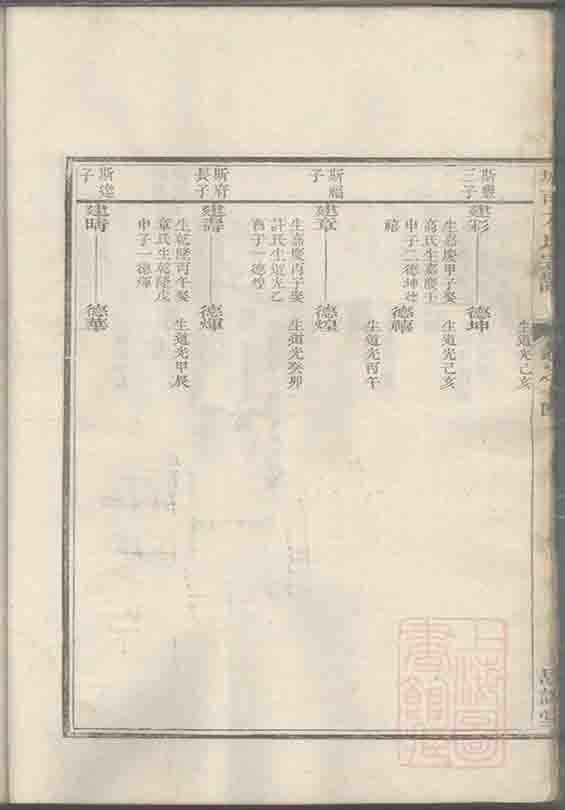 生道光己亥
斯豐
三子
建彩
生嘉慶甲子娶
高氏生嘉慶壬
申子二德坤德
禧
德坤
生道光己亥
德禧
生道光丙午
斯福
子
建章
生嘉慶丙子娶
許氏生道光乙
酉子一德煌
德煌
生道光癸卯
斯府
長子
建壽
生乾隆丙午娶
章氏生乾隆戊
申子一德煇
德煇
生道光甲辰
斯達
子
建時
德華
上海圖
書館藏